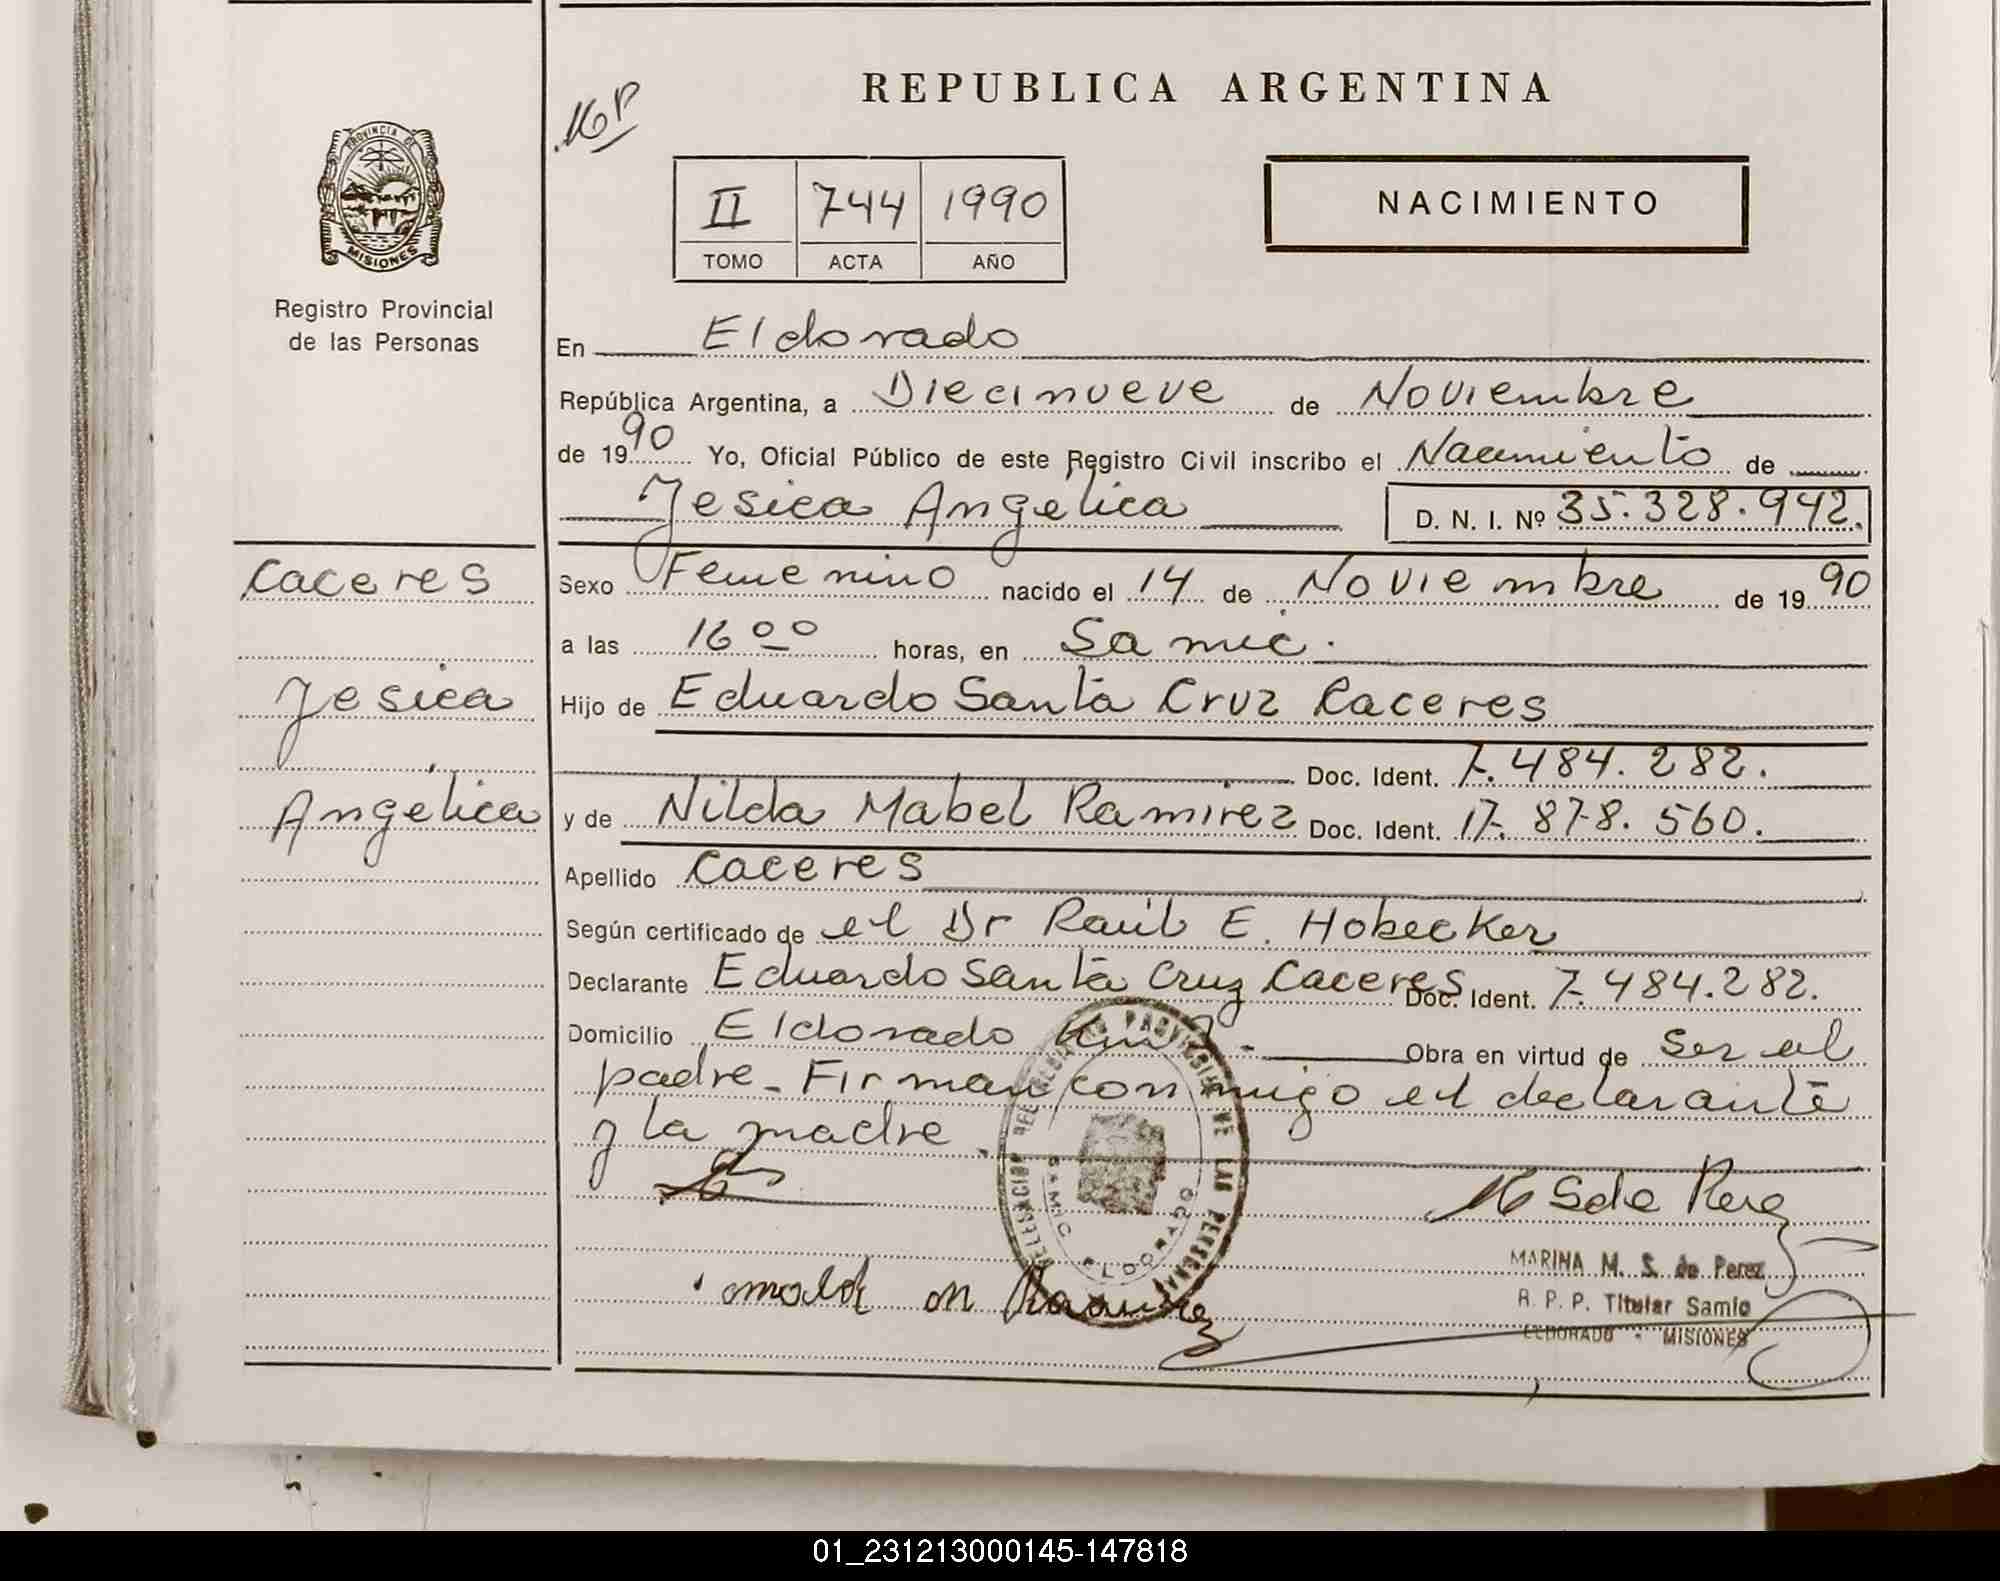 REPUBLICA ARGENTINA
PROVINCIA DE
MISIONES
Registro Provincial
de las Personas
II 744 1990
TOMO ACTA AÑO
NACIMIENTO
En Eldorado
República Argentina, a Diecinueve de Noviembre
de 1990 Yo, Oficial Público de este Registro Civil inscribo el Nacimiento de
Jesica Angelica D. N. I. Nº 35.328.942.
Caceres
Jesica
Angélica
Sexo Femenino nacido el 14 de Noviembre de 1990
a las 16 00 horas, en Samic.
Hijo de Eduardo Santa Cruz Caceres
Doc. Ident. 7.484.282.
y de Nilda Mabel Ramirez Doc. Ident. 17.878.560.
Apellido Caceres
Según certificado de el Dr Raúl E. Hobecker
Declarante Eduardo Santa Cruz Caceres Doc. Ident. 7.484.282.
Domicilio Eldorado Km Obra en virtud de ser el
padre - Firman conmigo el declarante
y la madre.
DELEGACION DEL REGISTRO PROVINCIAL DE LAS PERSONAS
SAMIC ELDORADO
M S de Perez
MARINA M. S. de Perez
R. P. P. Titular Samic
ELDORADO - MISIONES
Ramirez
01_231213000145-147818